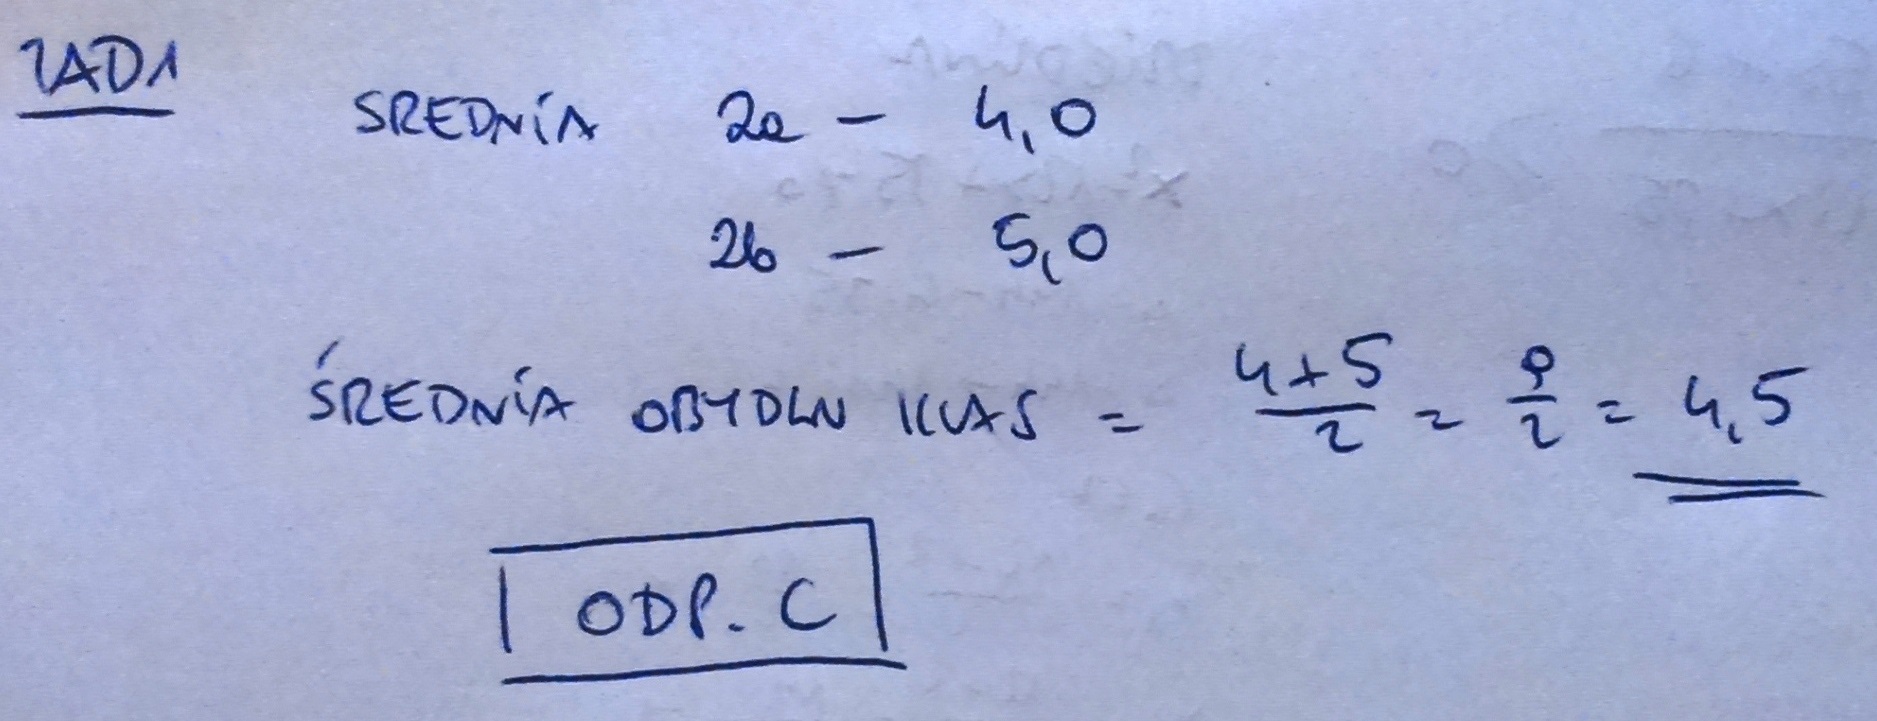 ZAD1
SREDNIA 2a - 4,0
2b - 5,0
ŚREDNIA OBYDW KLAS = 4+5/2 = 9/2 = 4,5
ODP. C